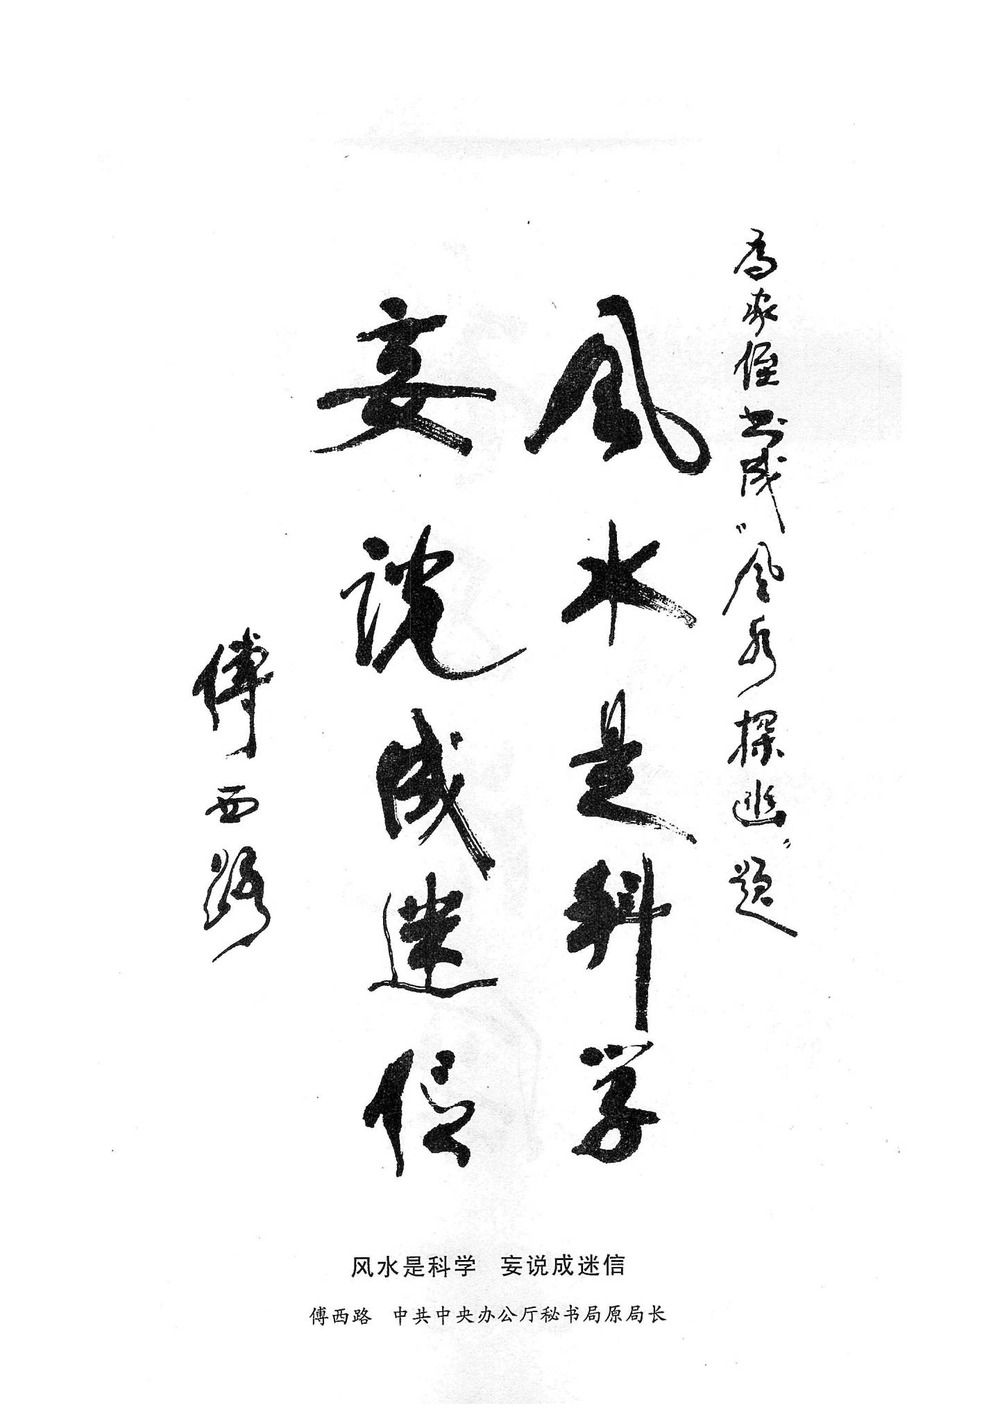 为家侄书成“风水探幽”题
风水是科学
妄说成迷信
傅西路
风水是科学 妄说成迷信
傅西路 中共中央办公厅秘书局原局长